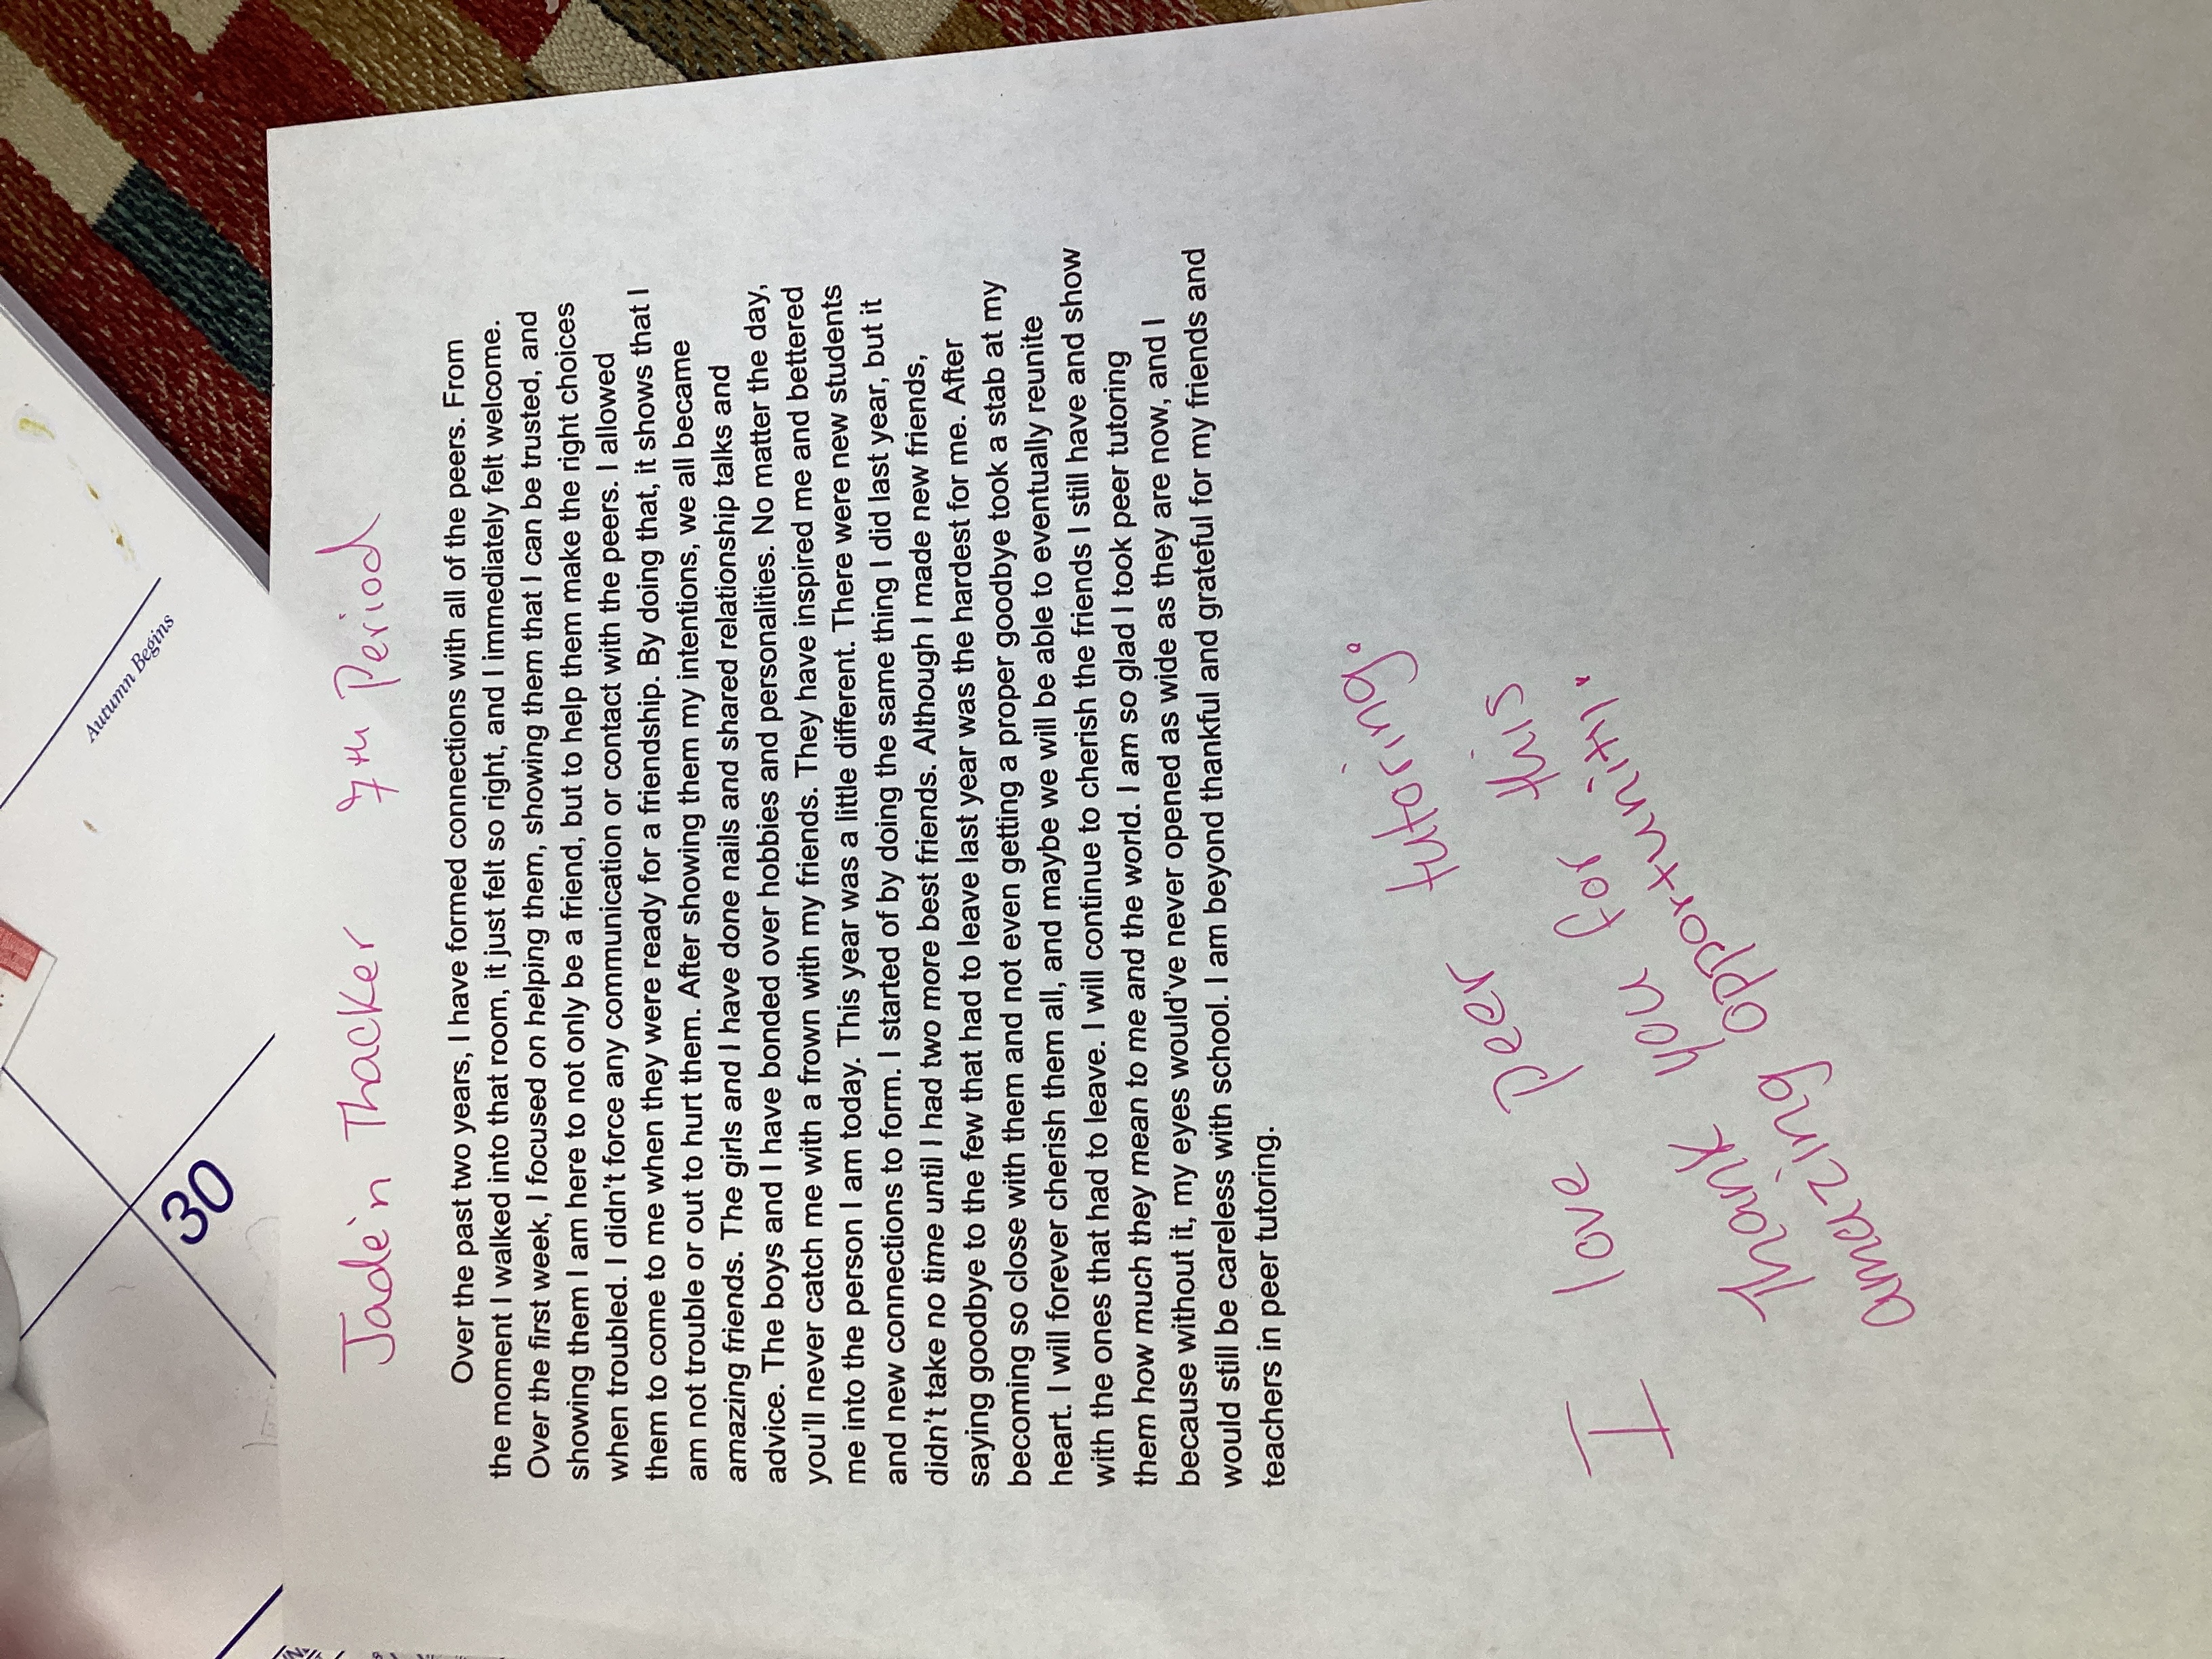 Autumn Begins
30
Jade'n Thacker 7th Period
Over the past two years, I have formed connections with all of the peers. From
the moment I walked into that room, it just felt so right, and I immediately felt welcome.
Over the first week, I focused on helping them, showing them that I can be trusted, and
showing them I am here to not only be a friend, but to help them make the right choices
when troubled. I didn't force any communication or contact with the peers. I allowed
them to come to me when they were ready for a friendship. By doing that, it shows that I
am not trouble or out to hurt them. After showing them my intentions, we all became
amazing friends. The girls and I have done nails and shared relationship talks and
advice. The boys and I have bonded over hobbies and personalities. No matter the day,
you'll never catch me with a frown with my friends. They have inspired me and bettered
me into the person I am today. This year was a little different. There were new students
and new connections to form. I started of by doing the same thing I did last year, but it
didn't take no time until I had two more best friends. Although I made new friends,
saying goodbye to the few that had to leave last year was the hardest for me. After
becoming so close with them and not even getting a proper goodbye took a stab at my
heart. I will forever cherish them all, and maybe we will be able to eventually reunite
with the ones that had to leave. I will continue to cherish the friends I still have and show
them how much they mean to me and the world. I am so glad I took peer tutoring
because without it, my eyes would've never opened as wide as they are now, and I
would still be careless with school. I am beyond thankful and grateful for my friends and
teachers in peer tutoring.
I love peer tutoring.
Thank you for this
amazing opportunity.